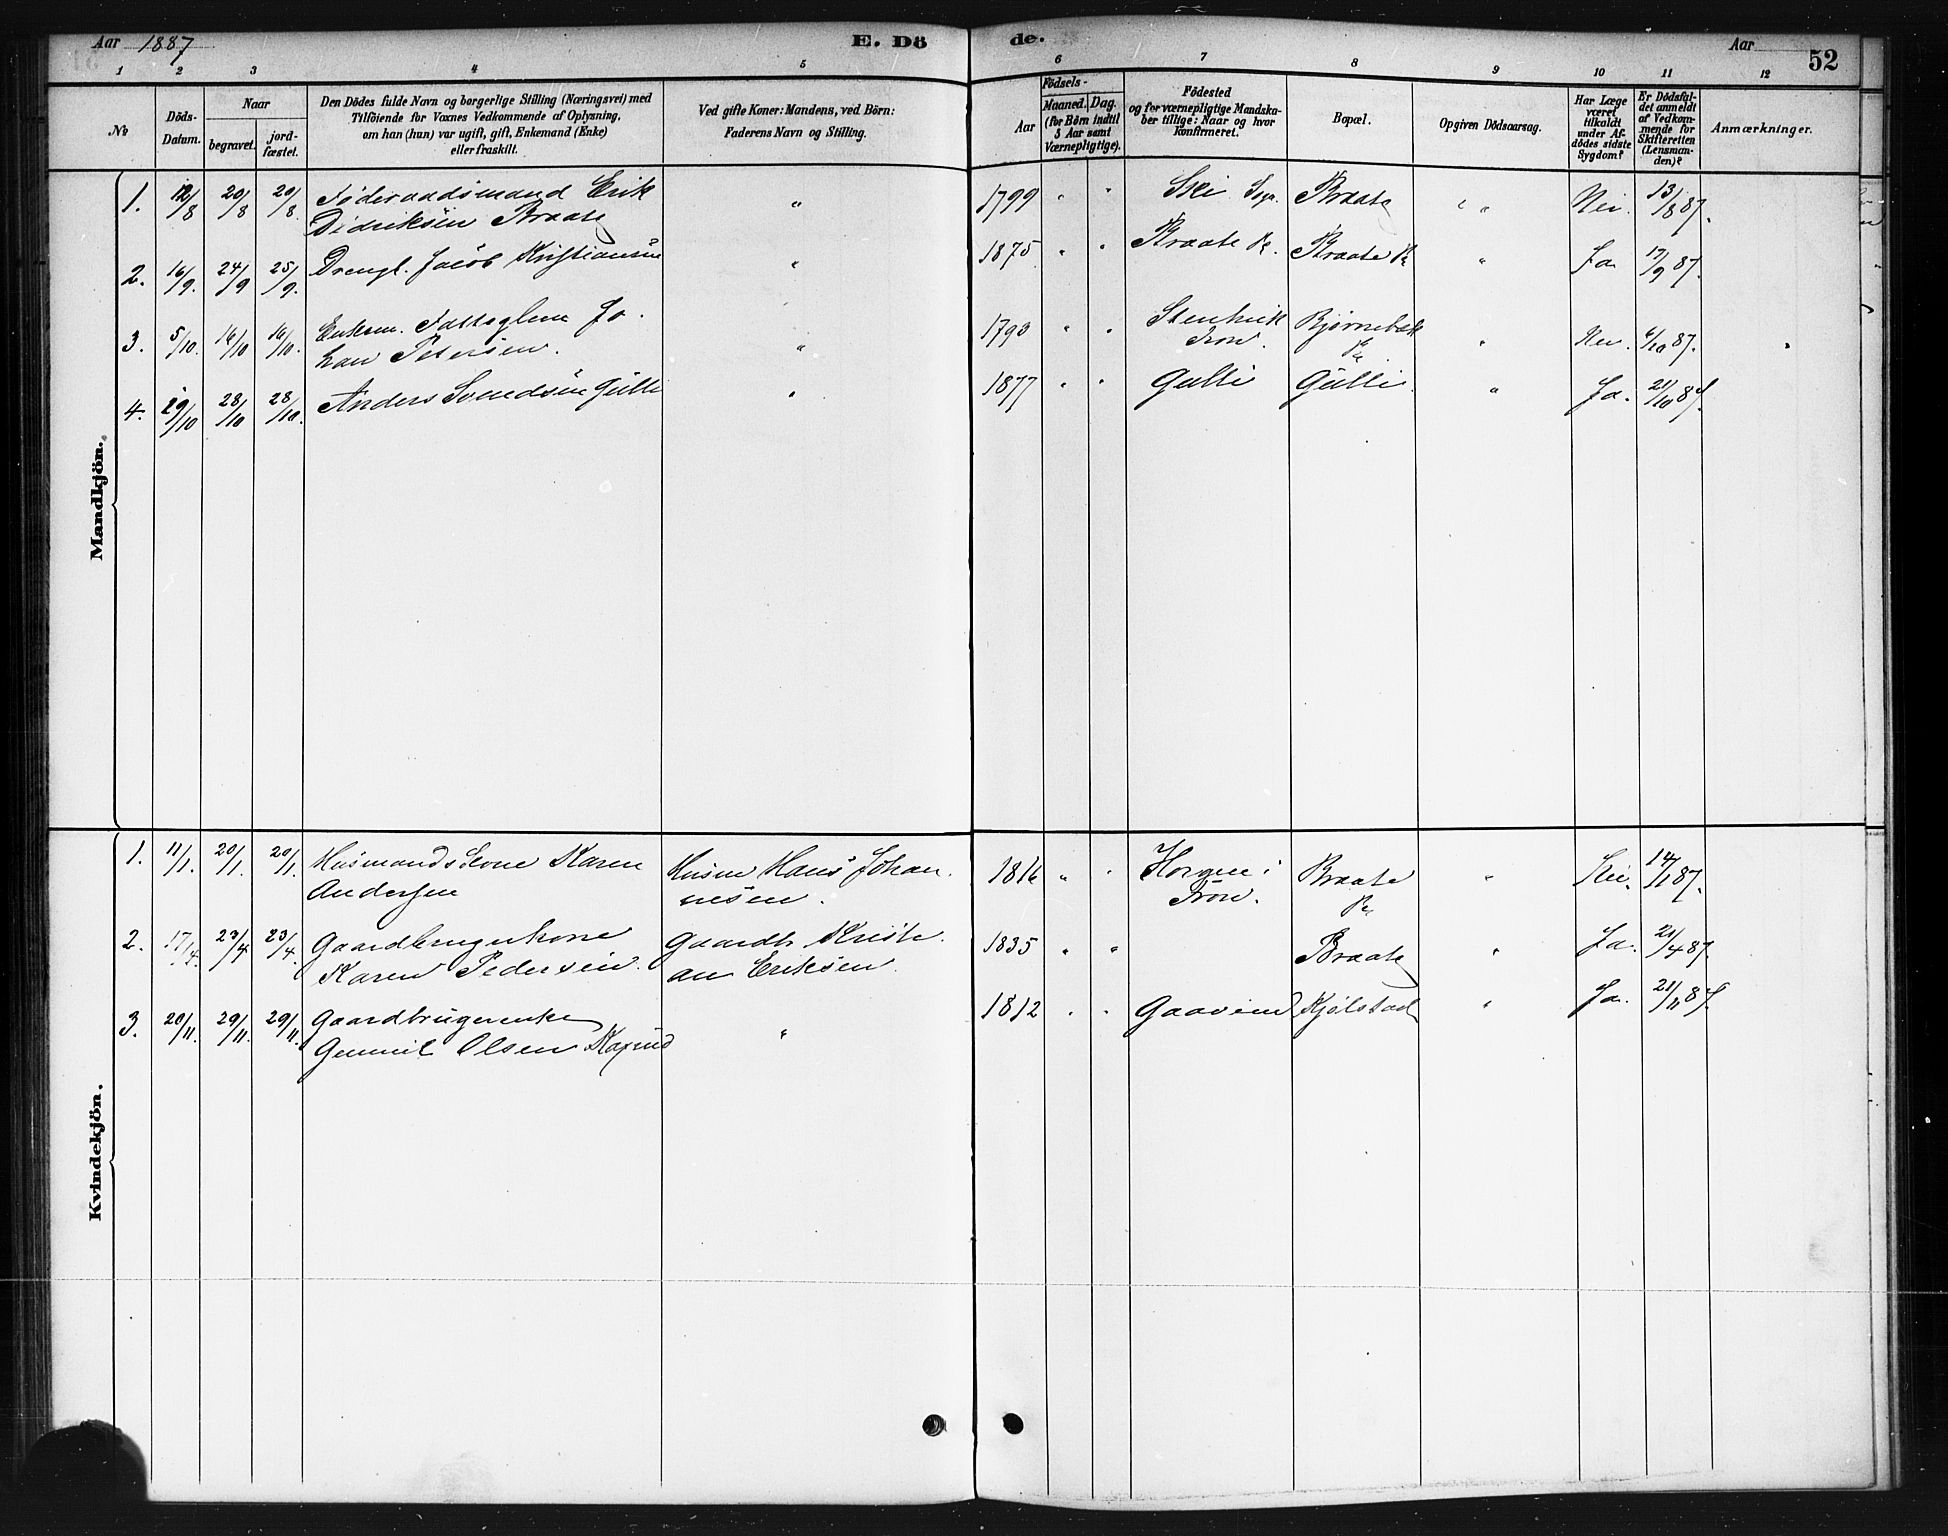 Aar 1887 E. Dö de. Aar 52
1 2 3 4 5 6 7 8 9 10 11 12
No
Döds-
Datum.
Naar
begravet.
jord-
fæstet.
Den Dödes fulde Navn og borgerlige Stilling (Næringsvei) med
Tilföiende for Voxnes Vedkommende af Oplysning,
om han (hun) var ugift, gift, Enkemand (Enke)
eller fraskilt.
Ved gifte Koner: Mandens, ved Börn:
Faderens Navn og Stilling.
Födsels-
Aar
Maaned. Dag.
(for Börn indtil
5 Aar samt
Værnepligtige).
Födested
og for værnepligtige Mandska-
ber tillige: Naar og hvor
Konfirmeret.
Bopæl.
Opgiven Dödsaarsag.
Har Læge
været
tilkaldt
under Af-
dödes sidste
Sygdom?
Er Dödsfal-
det anmeldt
af Vedkom-
mende for
Skifteretten
(Lensman-
den)?
Anmærkninger.
Mandkjön.
1. 12/8 20/8 20/8. Föderaadsmand Erik
Didriksen Braate " 1799 " " Ski Sogn Braate " " Nei. 13/8 87.
2. 16/9. 24/9 25/9. Drengl. Jacob Kristiansen " 1875 " " Braate Braate " Ja 17/9 87.
3. 5/10. 14/10 10. Jo
han Petersen. " 1793 " "
Tron. Bjørnebæk " Nei. 6/10 87. "
4. 19/10 28/10 28/10. Anders Svendsen Gulli " 1877 " " Gulli Gulli. " Ja. 21/10 87.
Kvindekjön.
1. 11/1. 20/1. 20/1. Husmandskone Karen
Andersen Husm Hans Johan
nesen. 1816 " " i
Tron. Braate " Nei. 14/1 87.
2. 17/4. 23/4 23/4. Gaardbrugerkone
Karen Pedersen. Gaardb Kristi
an Eriksen. 1835 " " Braate " Ja. 21/4 87.
3. 20/11. 29/11. 29/11. Gaardbrugerenke
Gunnil Olsen " 1812 " " Kjølstad " Ja. 21/11 87.